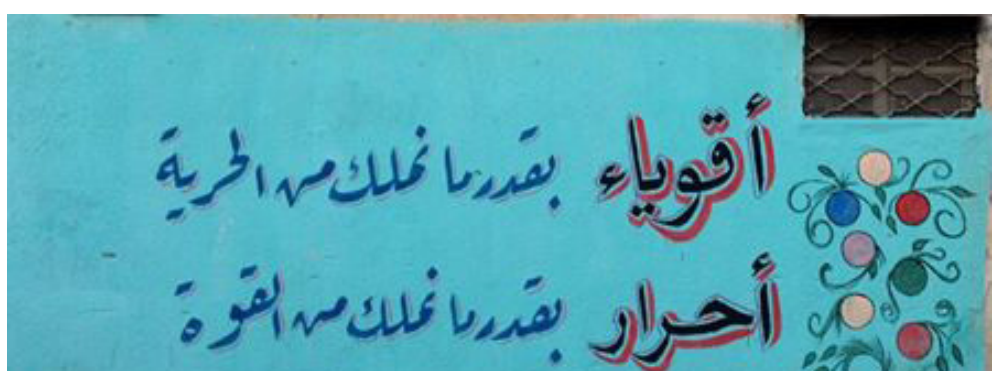 أقوياء بقدر ما نملك من الحرية
أحرار بقدر ما نملك من القوة